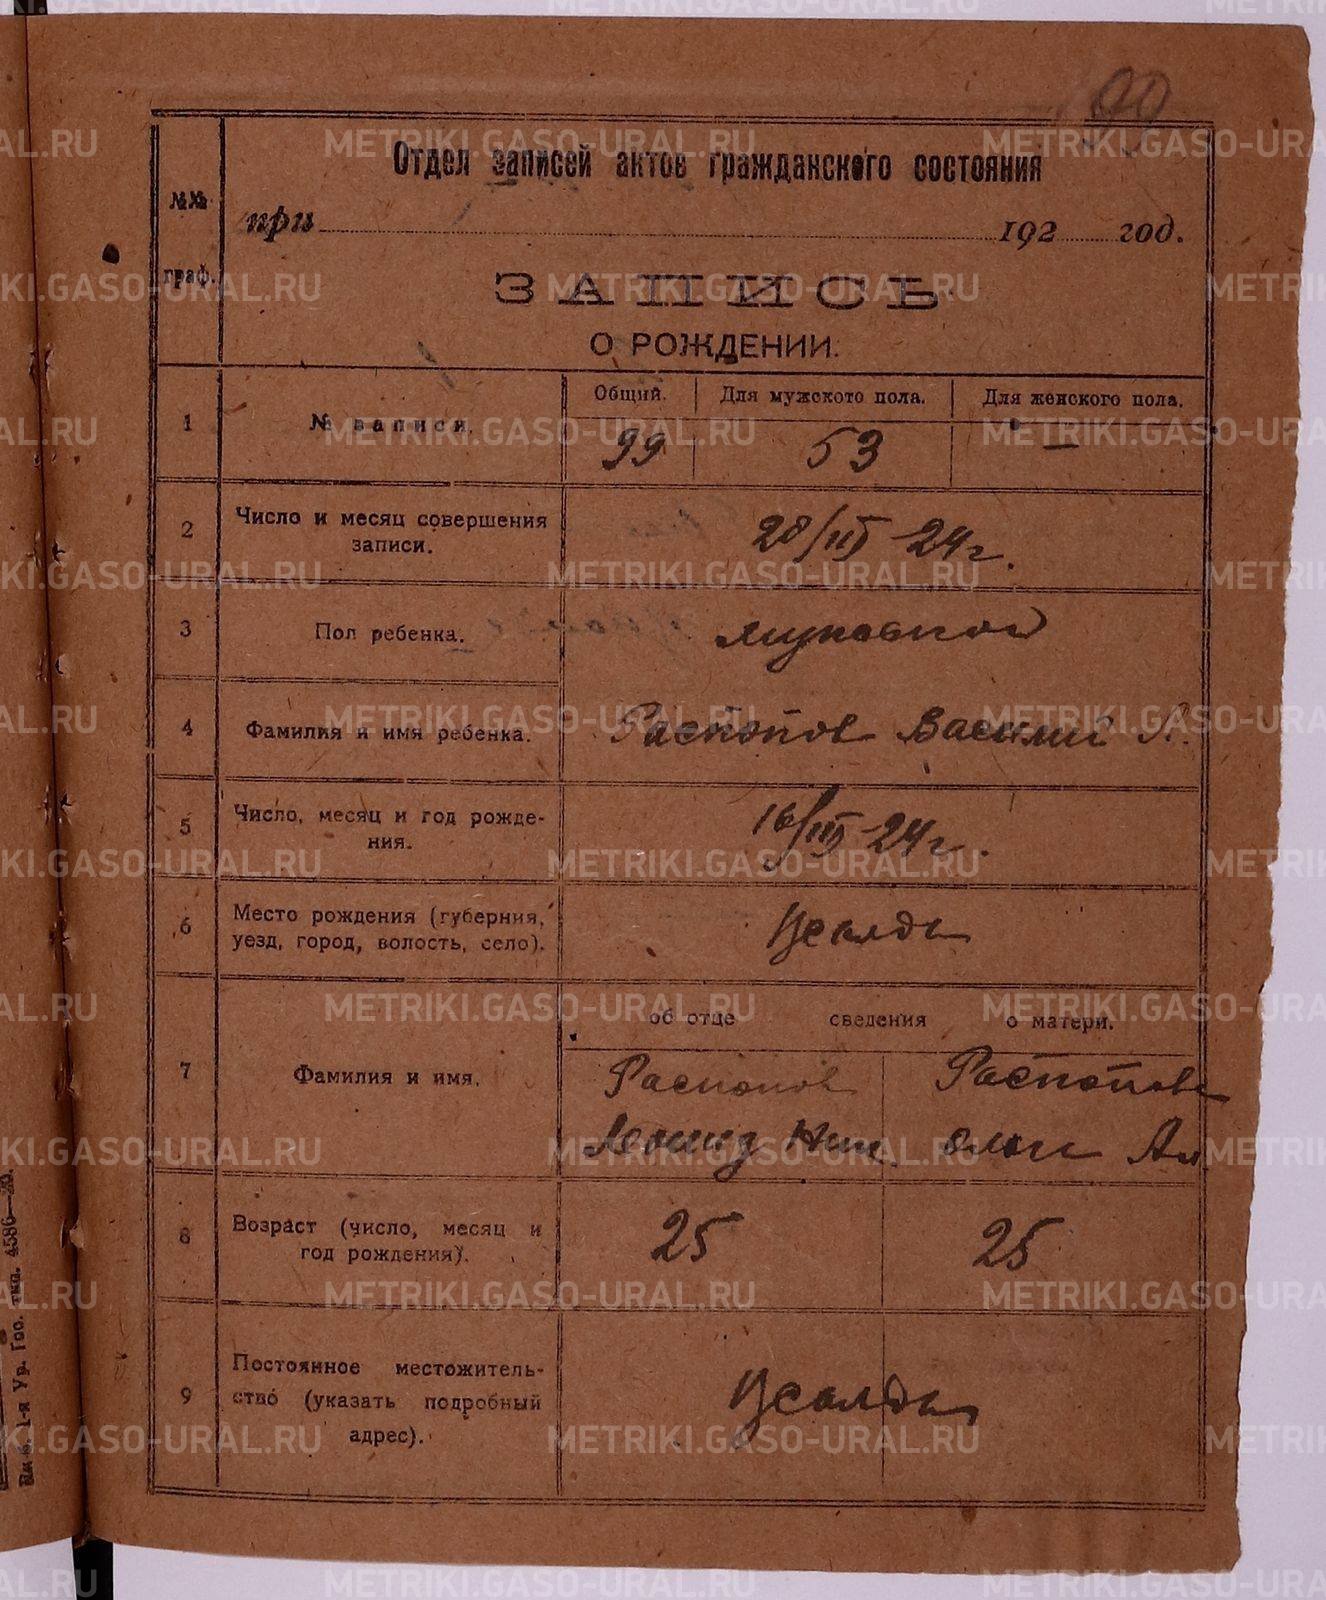 99
Отдел записей актов гражданского состояния
№№ граф.
при 192 год.
ЗАПИСЬ
О РОЖДЕНИИ.
1 № записи. Общий. Для мужского пола. Для женского пола.
99 53 —
2 Число и месяц совершения записи. 28/III-24 г.
3 Пол ребенка. мужской
4 Фамилия и имя ребенка. Распопов Василий Л.
5 Число, месяц и год рождения. 16/III-24 г.
6 Место рождения (губерния, уезд, город, волость, село).
об отце сведения о матери.
7 Фамилия и имя. Распопов Распопова
Леонид Ник. Ольга Ал
8 Возраст (число, месяц и год рождения). 25 25
9 Постоянное местожительство (указать подробный адрес).
1-я Ур. Гос. тип. 4586
METRIKI.GASO-URAL.RU